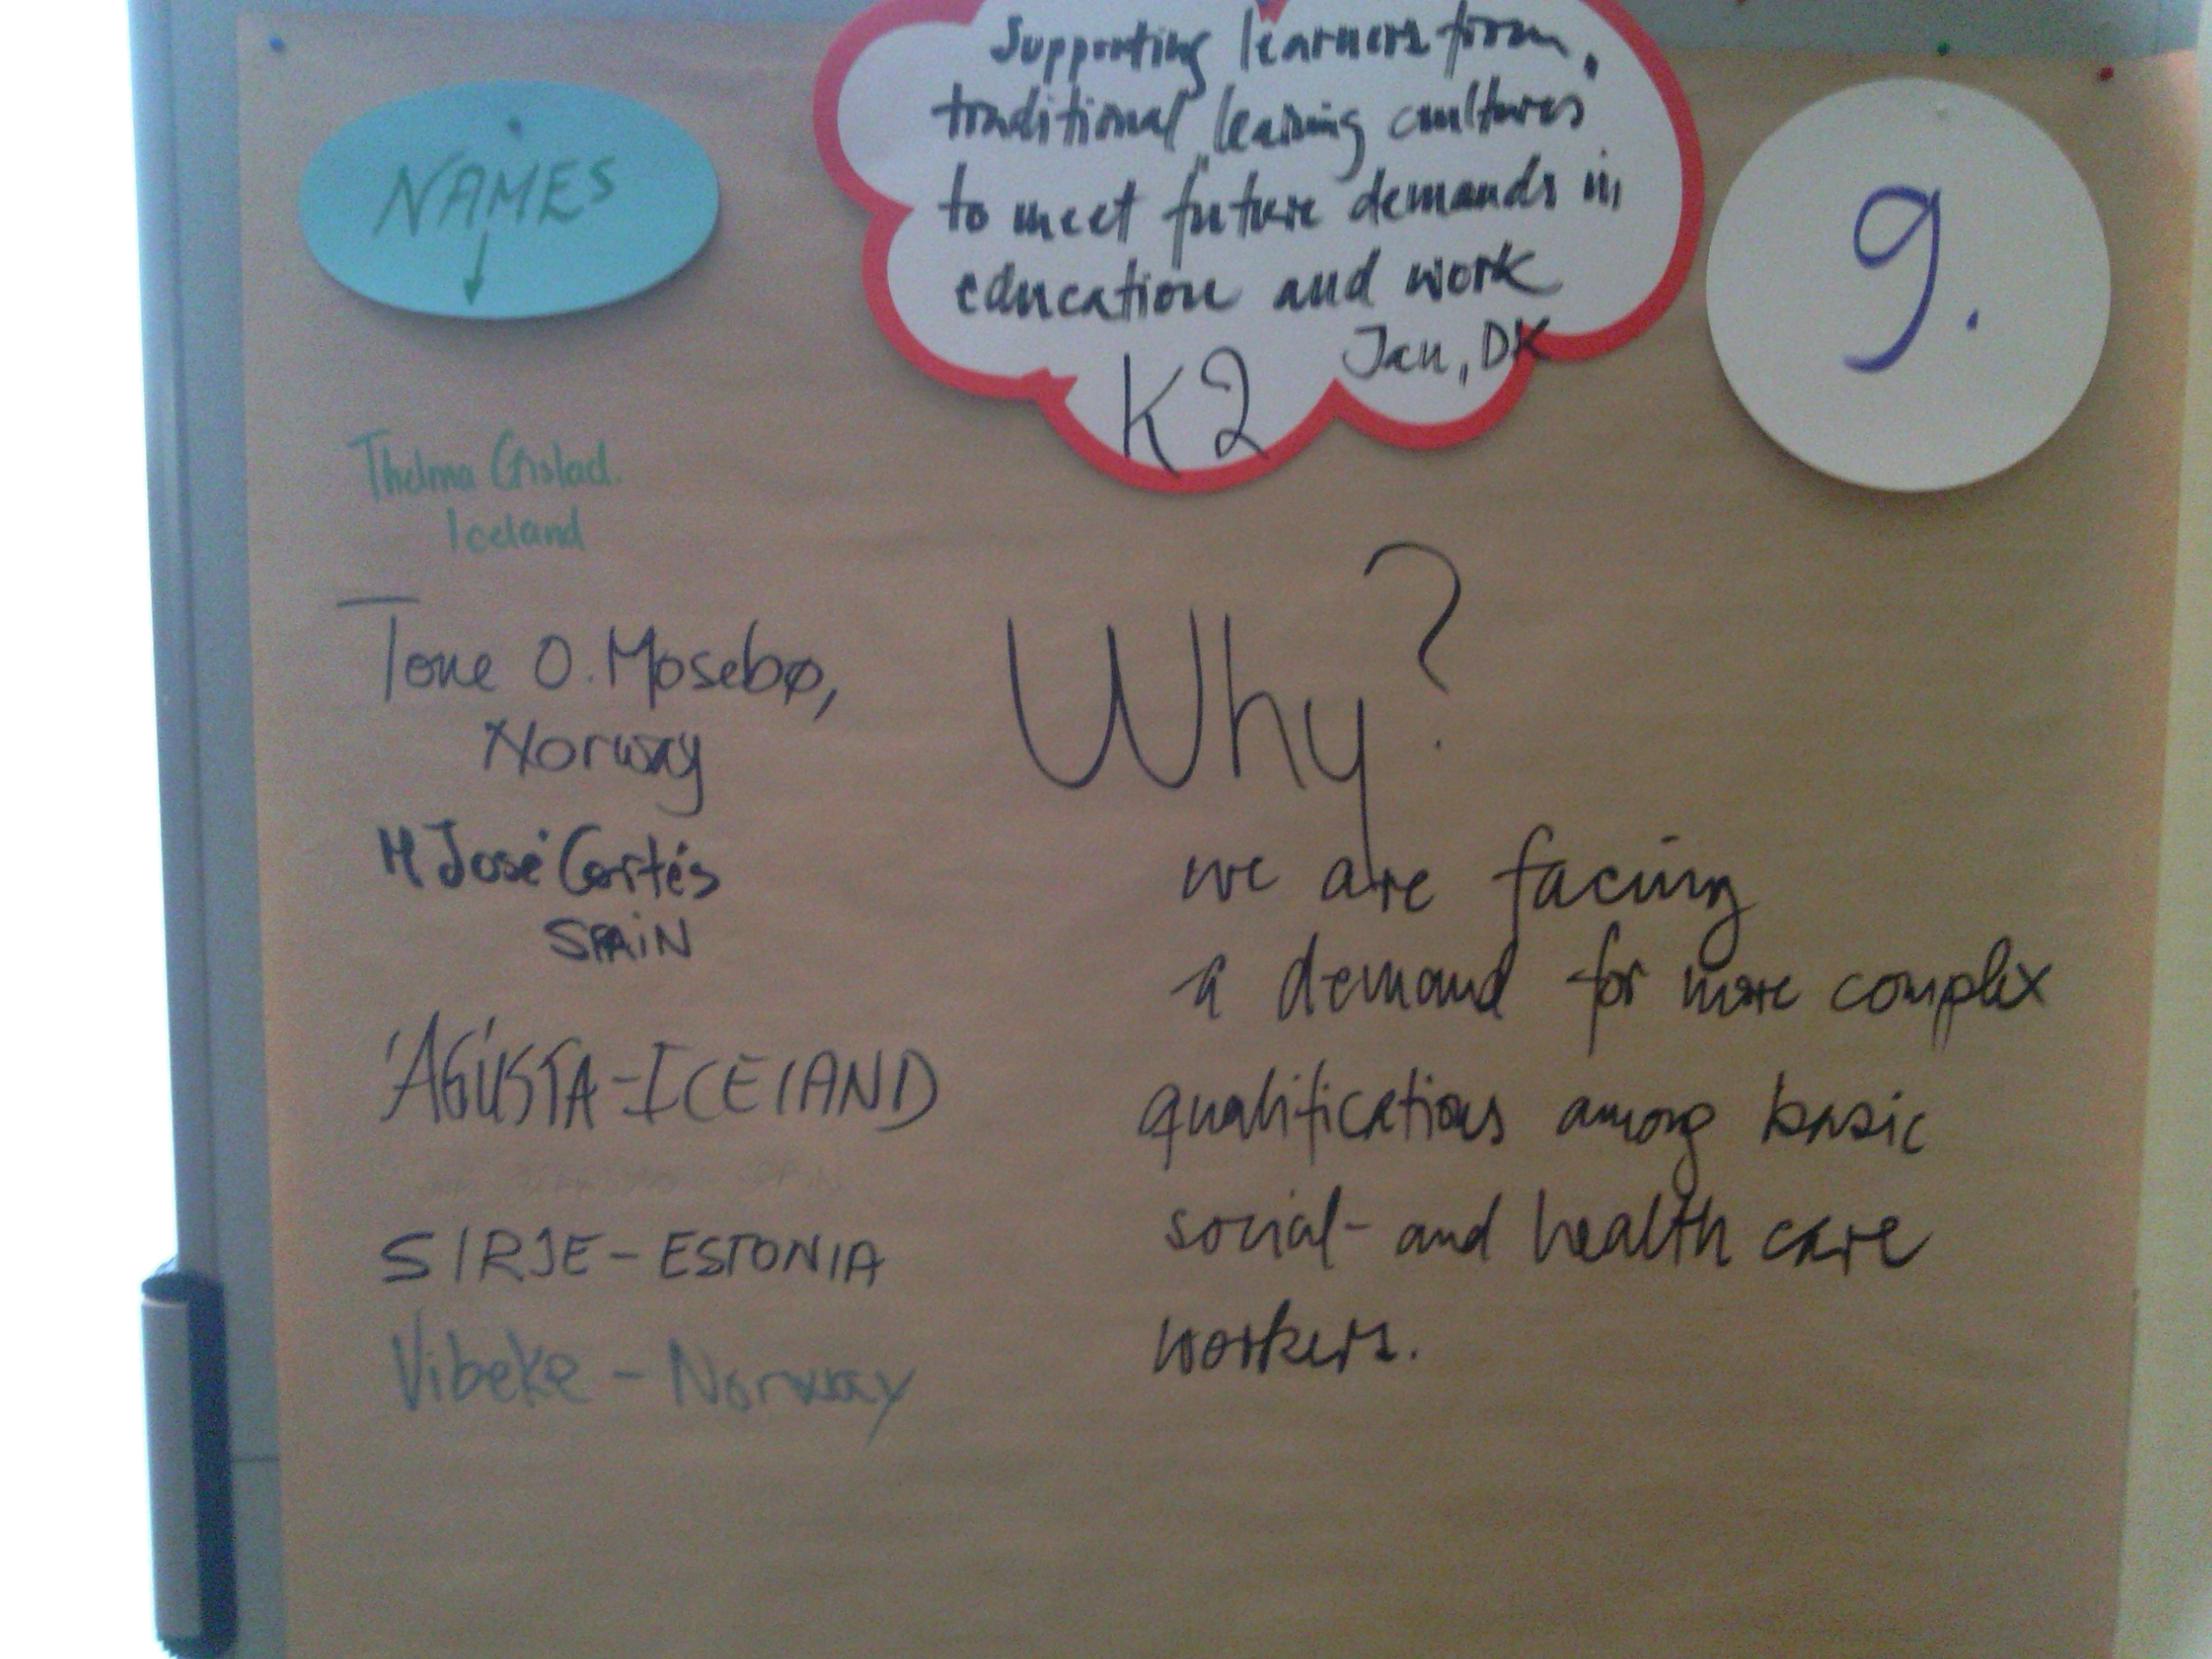 NAMES
Supporting learners from
traditional learning cultures
to meet future demands in
education and work
Jan, DK
K2
9.
Thelma Gislad.
Iceland
Tone O. Mosebø,
Norway
M José Cortés
SPAIN
ÁGÚSTA-ICELAND
SIRJE-ESTONIA
Vibeke - Norway
Why?
we are facing
a demand for more complex
qualifications among basic
social- and health care
workers.